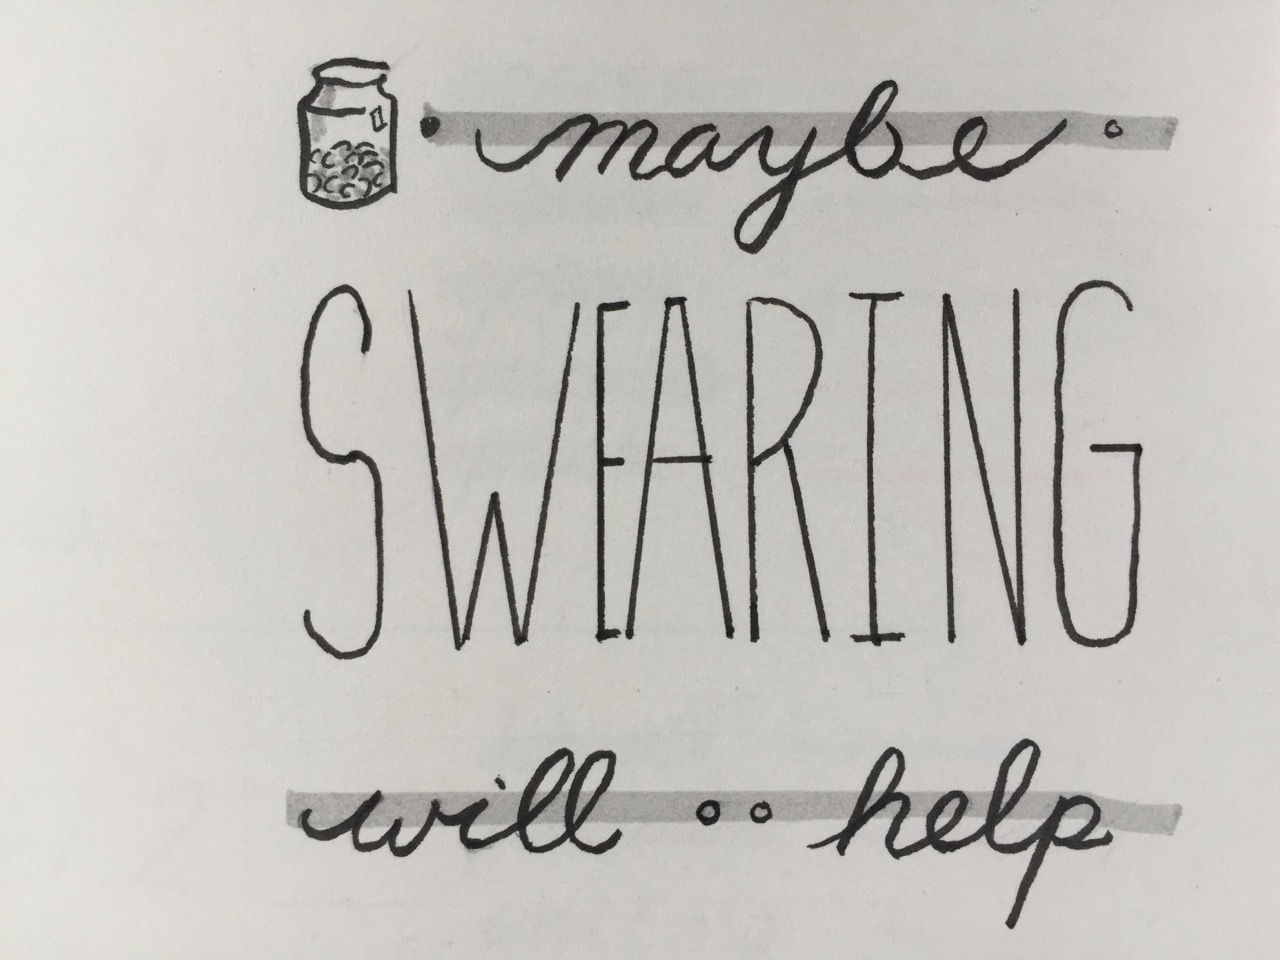 maybe
SWEARING
will help